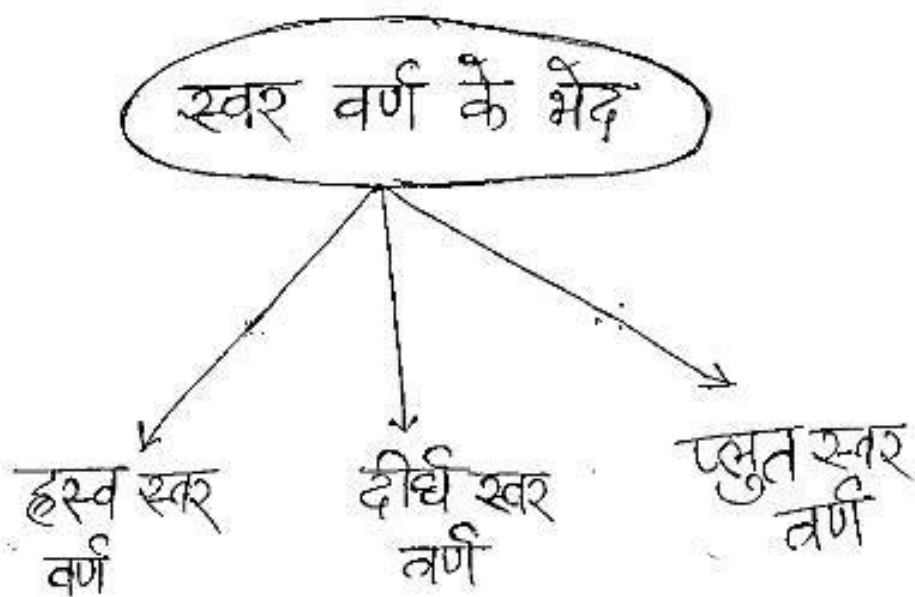 स्वर वर्ण के भेद
ह्रस्व स्वर
वर्ण
दीर्घ स्वर
वर्ण
प्लुत स्वर
वर्ण